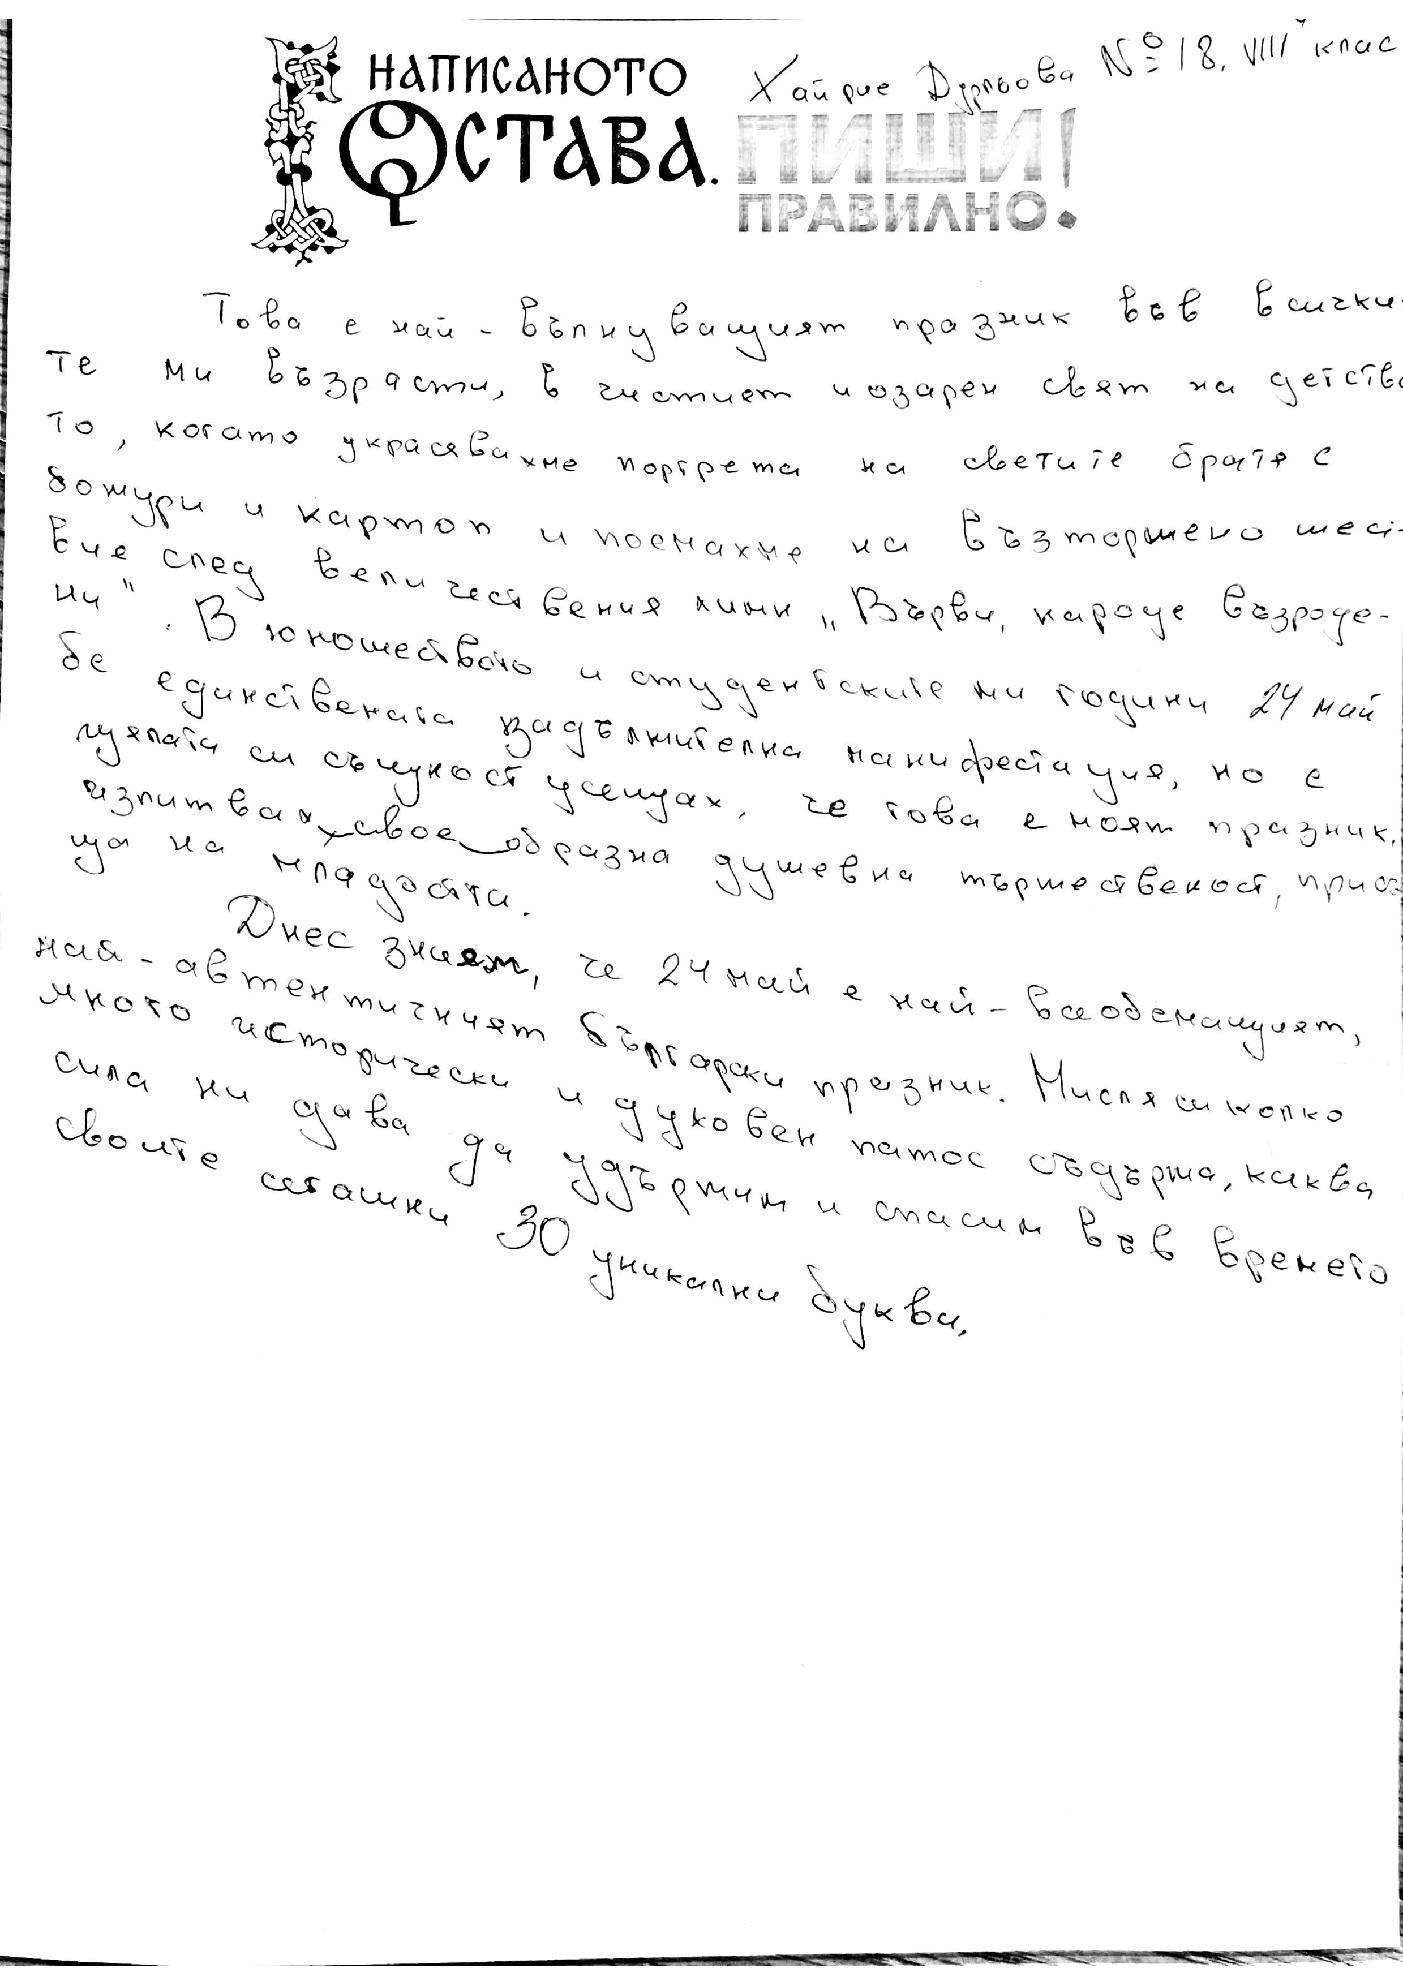 НАПИСАНОТО
ОСТАВА.
ПИШИ!
ПРАВИЛНО.
Хайрие № 18, VIII клас
Това е най-вълнуващият празник във всички-
те ми възрасти, в чистият и озарен свят на детство
то, когато украсявахме портрета на светите братя с
божури и картоп и поемахме на възторжено шест-
вие след величествения химн „Върви, народе възроде-
ни". В юношеството и студентските ми години 24 май
бе единствената задължителна манифестация, но с
цялата си същност усещах, че това е моят празник,
изпитвах своеобразна душевна тържественост, прис
ща на младостта.
Днес знаем, че 24 май е най-всеобемащият,
най-автентичният български празник. Мисля си колко
много исторически и духовен патос съдържа, каква
сила ни дава да удържим и спасим във времето
своите сегашни 30 уникални букви.